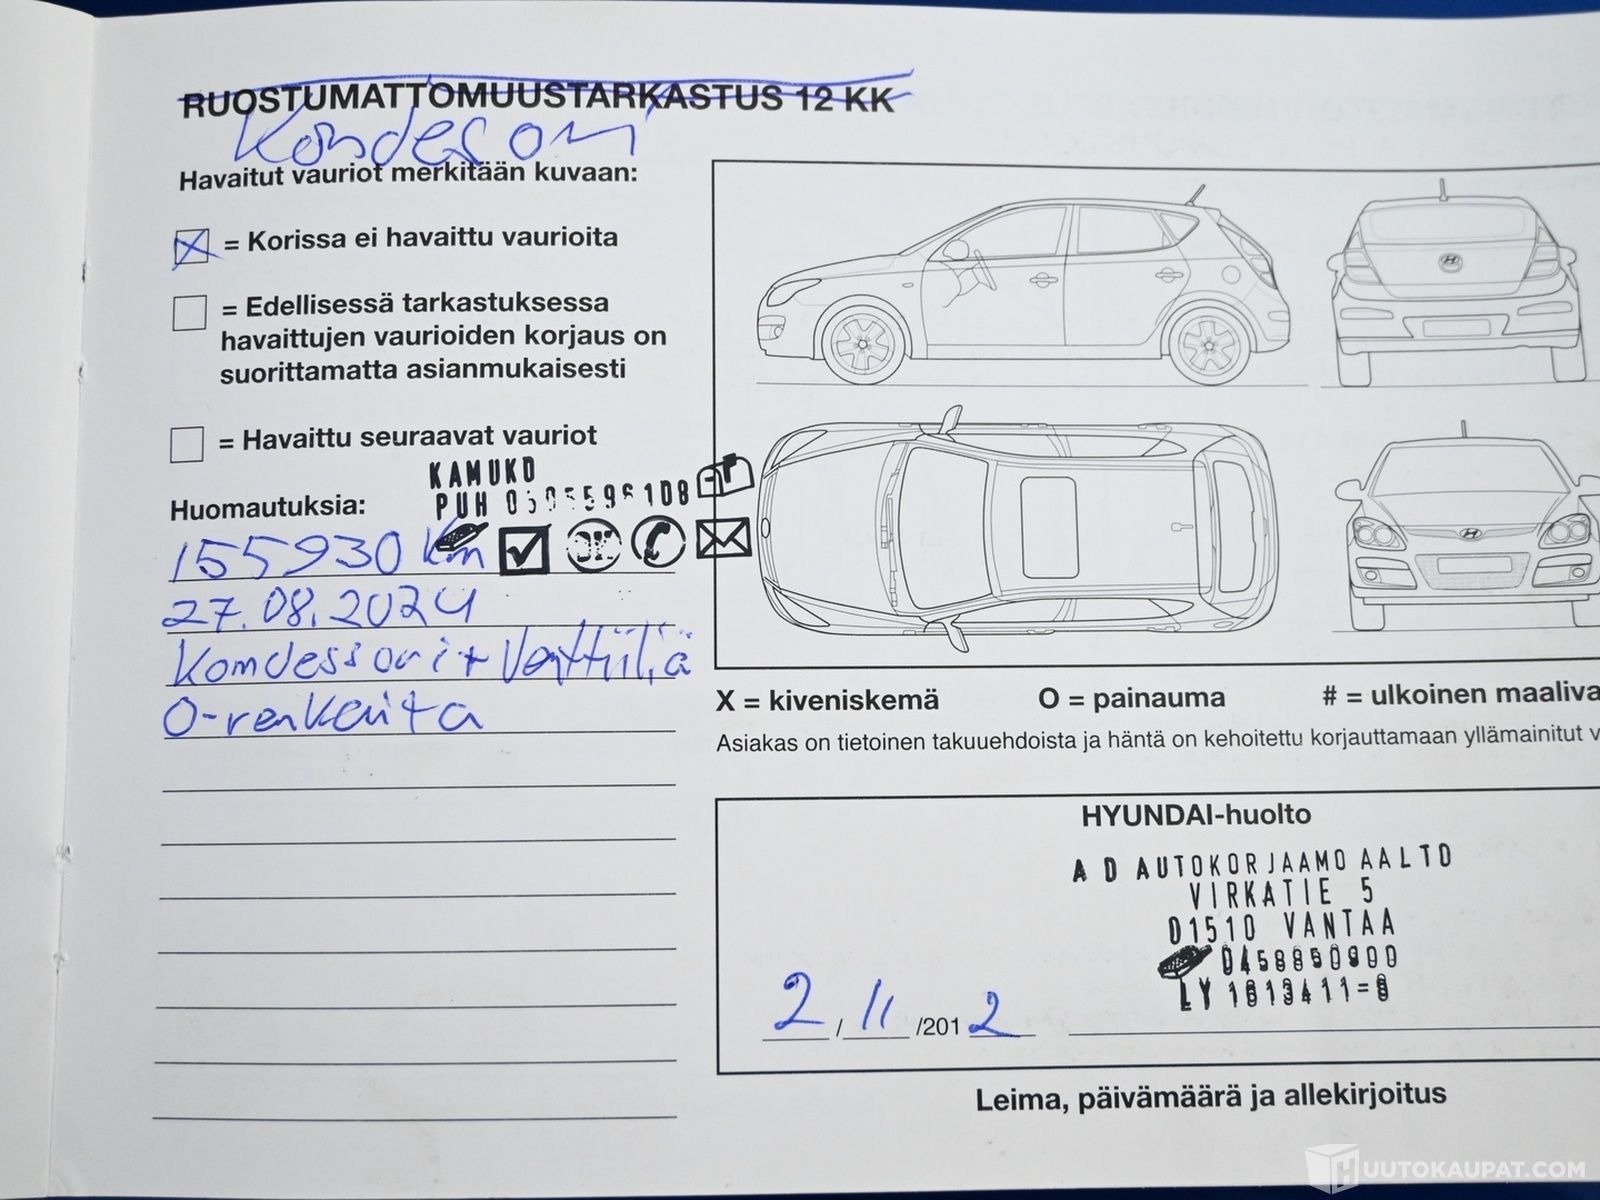 RUOSTUMATTOMUUSTARKASTUS 12 KK
Kondesori
Havaitut vauriot merkitään kuvaan:
= Korissa ei havaittu vaurioita
= Edellisessä tarkastuksessa
havaittujen vaurioiden korjaus on
suorittamatta asianmukaisesti
= Havaittu seuraavat vauriot
KAMUKO
PUH 0505596108
Huomautuksia:
155930 km
OK
27.08.2024
Komdessori + Venttiiliä
O-renkaita
X = kiveniskemä
O = painauma
# = ulkoinen maaliva
Asiakas on tietoinen takuuehdoista ja häntä on kehoitettu korjauttamaan yllämainitut v
HYUNDAI-huolto
AD AUTOKORJAAMO AALTO
VIRKATIE 5
01510 VANTAA
0458850900
LY 1813411-8
2 / 11 /2012
Leima, päivämäärä ja allekirjoitus
HUUTOKAUPAT.COM